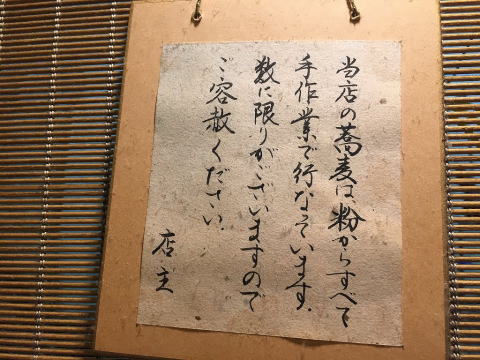 当店の蕎麦は、粉からすべて
手作業で行なっています.
数に限りがございますので
ご容赦ください.
店主